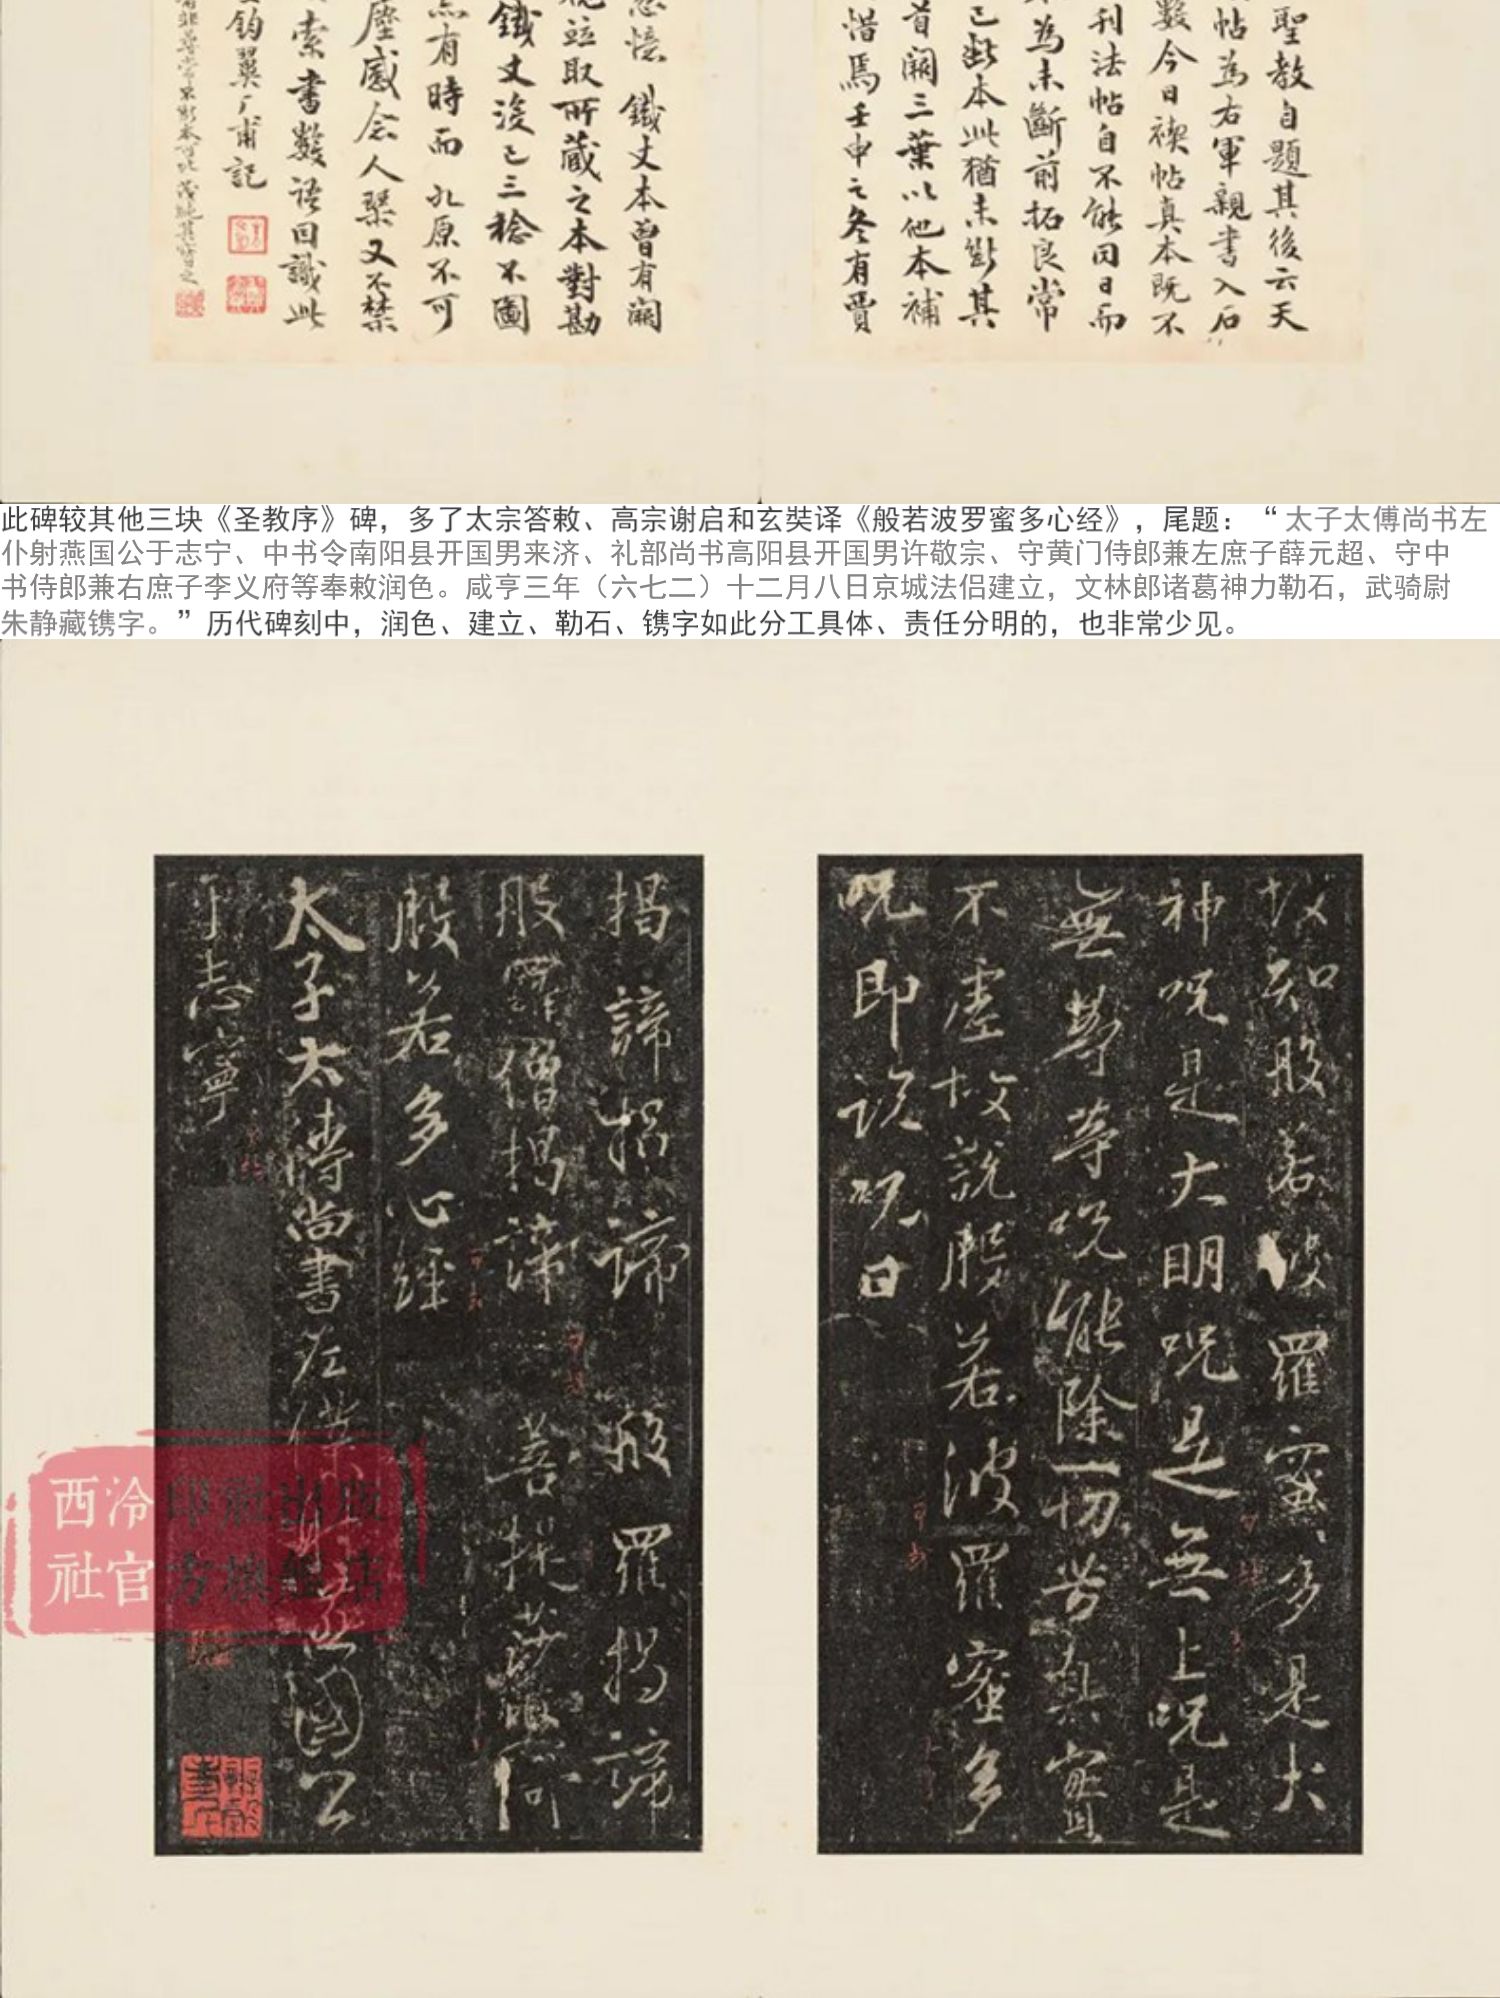 聖教自題其後云天
帖為右軍親書入石
數今日禊帖真本既不
刊法帖自不能同日而
為未斷前拓良常
已断本此猶未断其
首闕三葉以他本補
惜焉壬申之冬有賈
鐵丈本曾有闕
竝取所藏之本對勘
鐵丈沒已三稔不圖
有時而九原不可
塵感念人琹又不禁
索書數語回識此
鈞翼厂甫記
此碑较其他三块《圣教序》碑，多了太宗答敕、高宗谢启和玄奘译《般若波罗蜜多心经》，尾题：“太子太傅尚书左
仆射燕国公于志宁、中书令南阳县开国男来济、礼部尚书高阳县开国男许敬宗、守黄门侍郎兼左庶子薛元超、守中
书侍郎兼右庶子李义府等奉敕润色。咸亨三年（六七二）十二月八日京城法侣建立，文林郎诸葛神力勒石，武骑尉
朱静藏镌字。”历代碑刻中，润色、建立、勒石、镌字如此分工具体、责任分明的，也非常少见。
故知般若波羅蜜多是大
神咒是大明咒是無上咒是
無等等咒能除一切苦真實
不虛故說般若波羅蜜多
咒即說咒曰
揭諦揭諦 般羅揭諦
般羅僧揭諦 菩提莎婆呵
般若多心經
太子太傅尚書左僕射燕國公
于志寧
西泠印社出版
社官方旗舰店